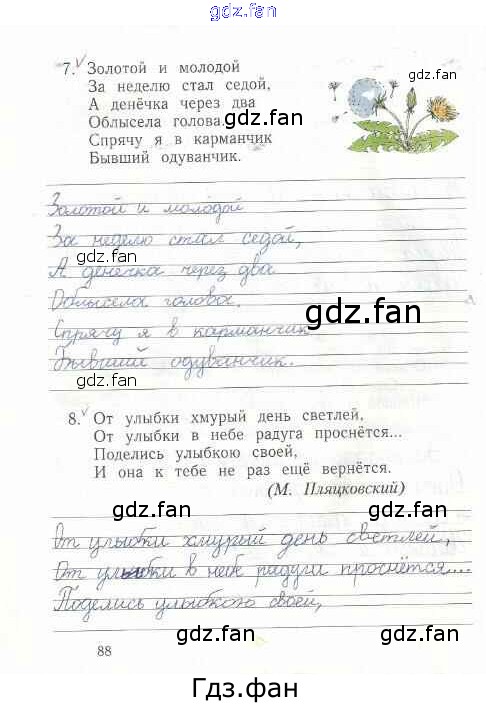 gdz.fan
7. Золотой и молодой
За неделю стал седой,
gdz.fan
А денёчка через два
Облысела голова.
gdz.fan
Спрячу я в карманчик
gdz.fan
Бывший одуванчик.
Золотой и молодой
За неделю стал седой,
А денёчка через два
Облысела голова.
gdz.fan
Спрячу я в карманчик
gdz.fan
Бывший одуванчик.
gdz.fan
8. От улыбки хмурый день светлей,
От улыбки в небе радуга проснётся...
Поделись улыбкою своей,
И она к тебе не раз ещё вернётся.
(М. Пляцковский)
gdz.fan
gdz.fan
От улыбки хмурый день светлей,
От улыбки в небе радуга проснётся...
Поделись улыбкою своей,
gdz.fan
88
gdz.fan
gdz.fan
Гдз.фан